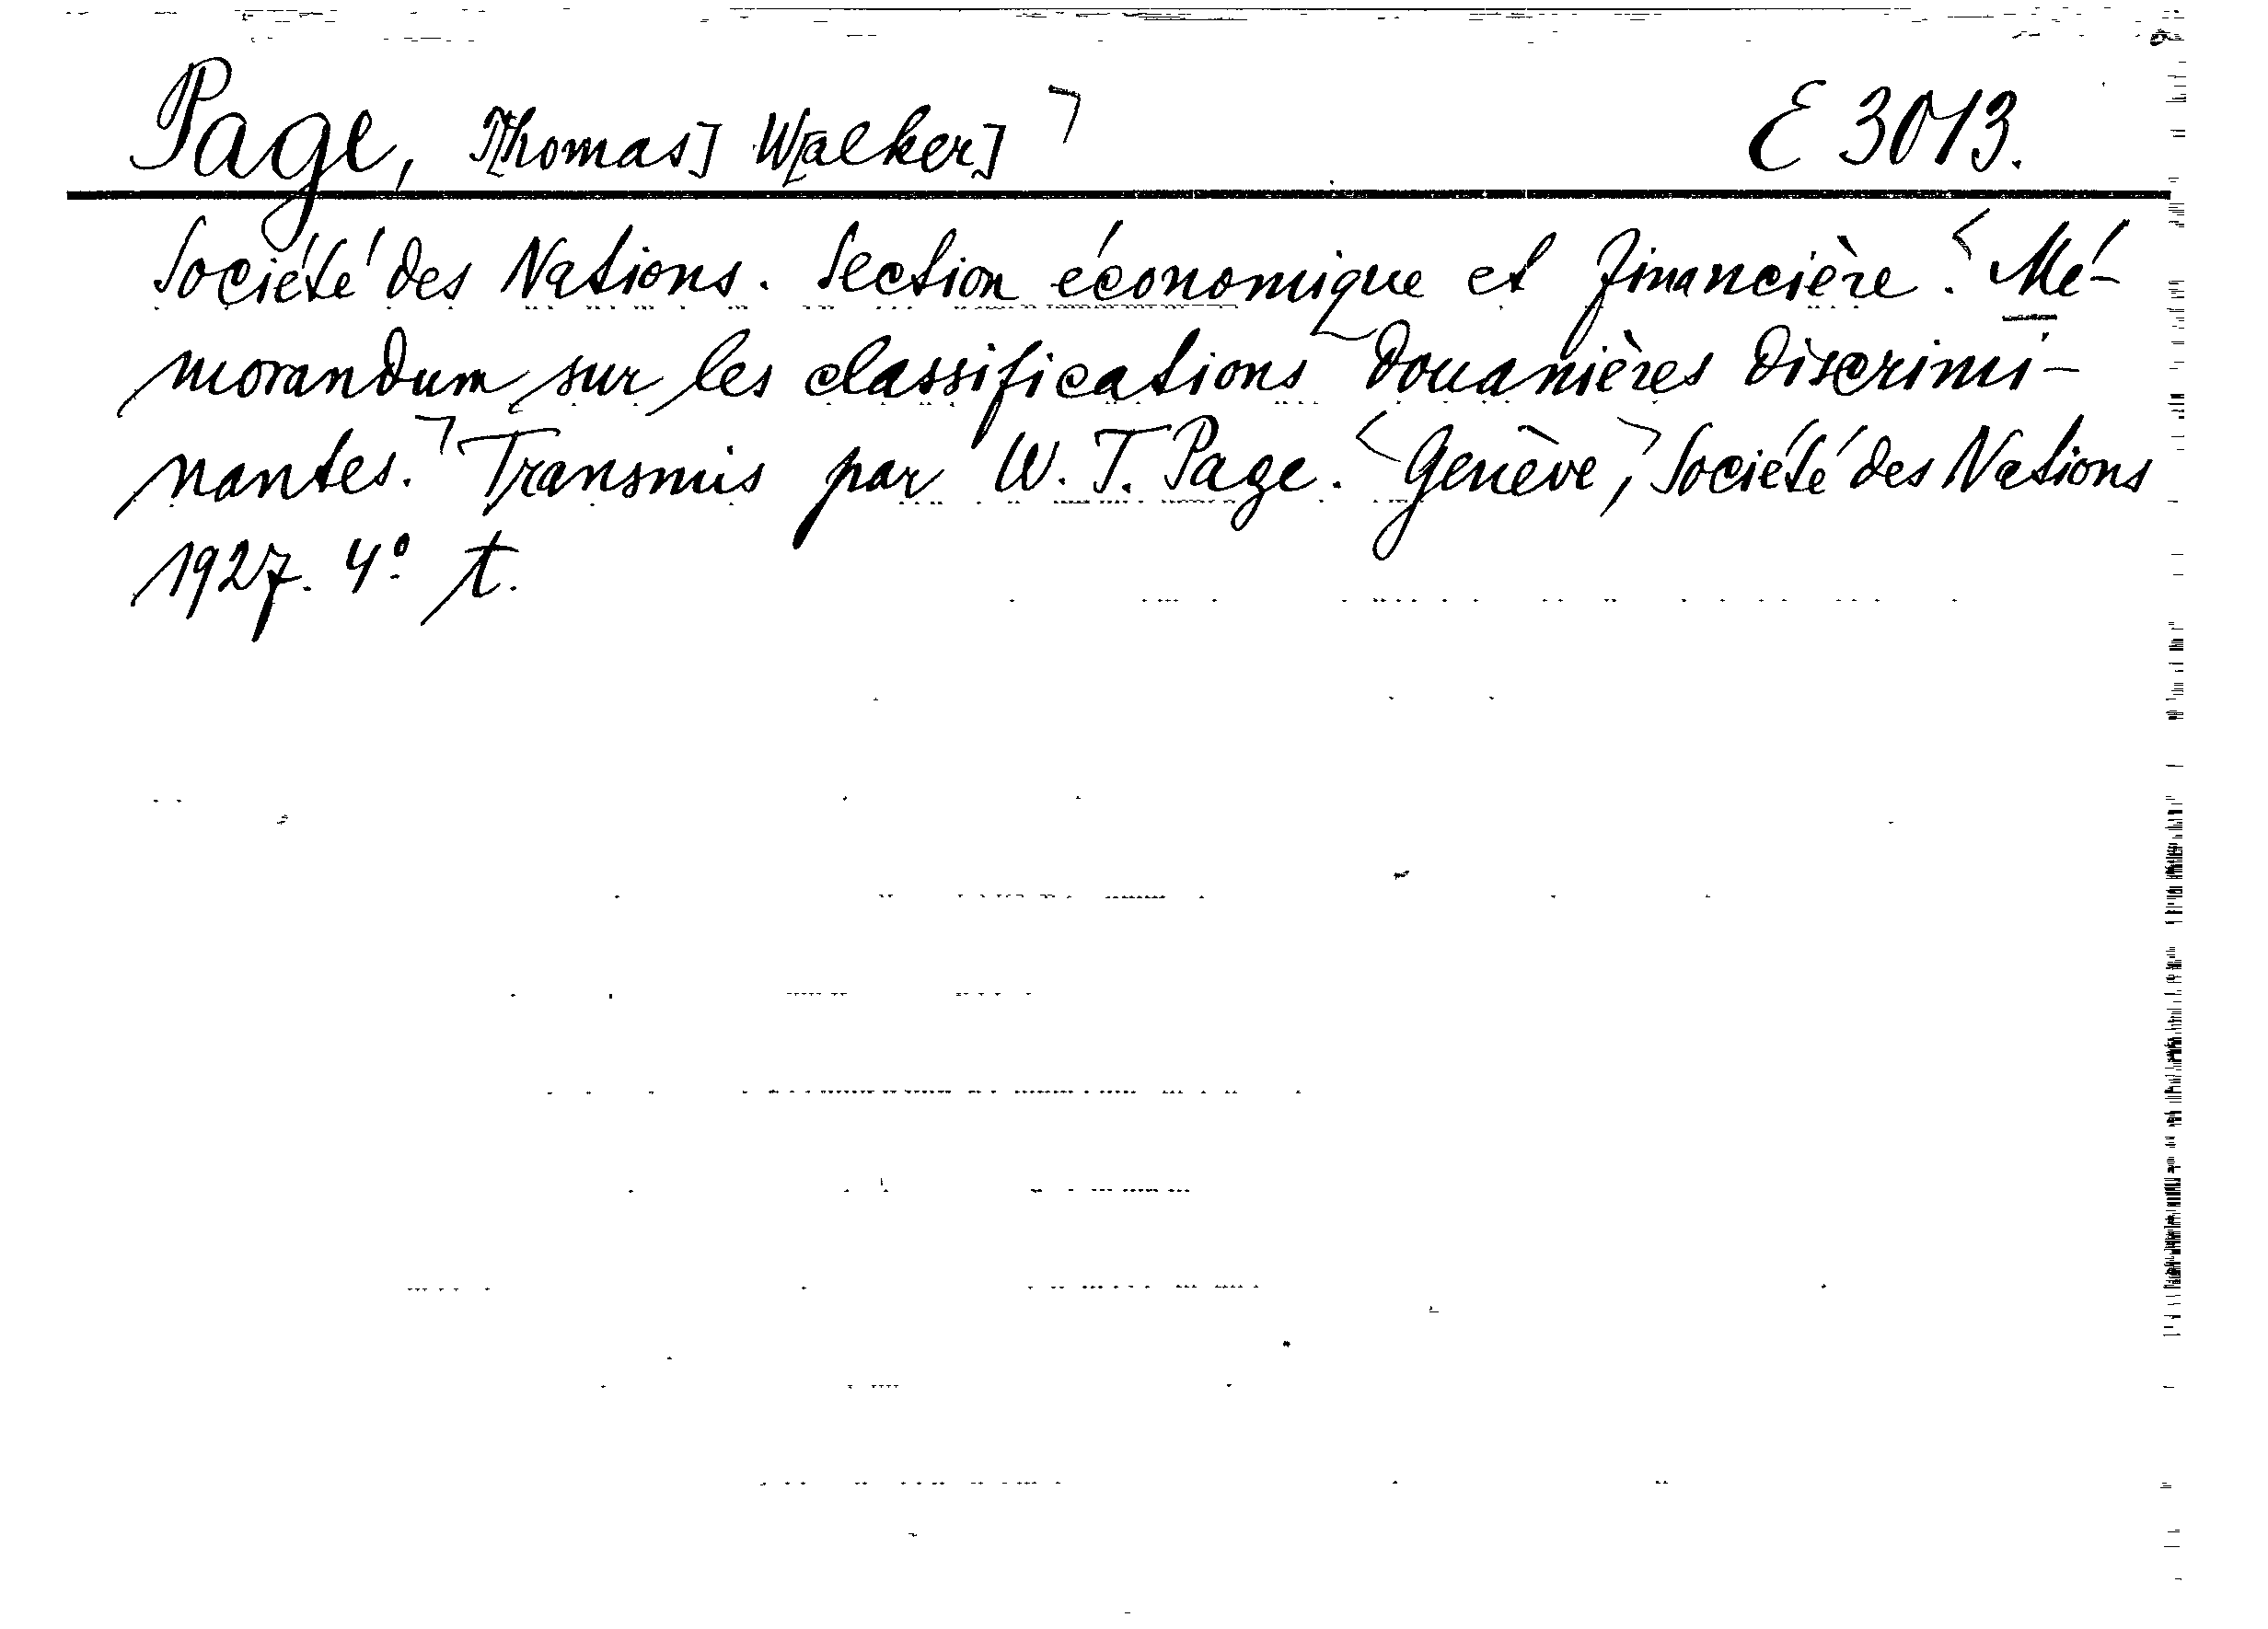 Page, T[homas] W[alker] ⌝ E 3013.
Société des Nations. Section économique et financière. <Mé-
morandum sur les classifications douanières discrimi-
nantes.⌝ Transmis par W. T. Page. <Genève,⌝ Société des Nations
1927. 4º t.